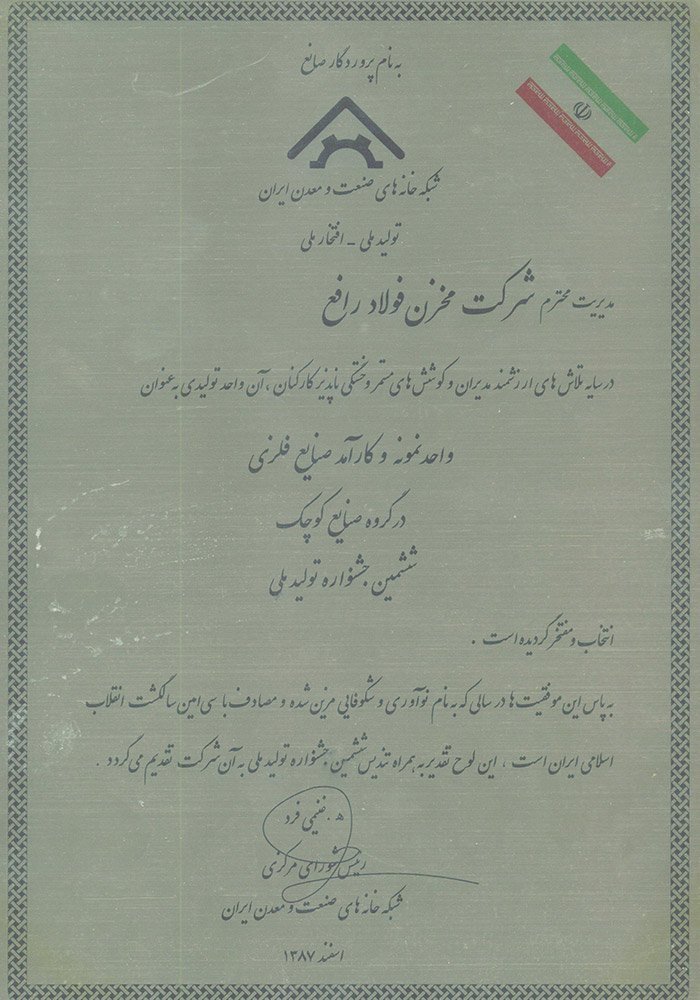 به نام پروردگار صانع
شبکه خانه های صنعت و معدن ایران
تولید ملی - افتخار ملی
مدیریت محترم شرکت مخزن فولاد رافع
در سایه تلاش های ارزشمند مدیران و کوشش های مستمر و خستگی ناپذیر کارکنان ، آن واحد تولیدی به عنوان
واحد نمونه و کارآمد صنایع فلزی
در گروه صنایع کوچک
ششمین جشنواره تولید ملی
انتخاب و مفتخر گردیده است .
به پاس این موفقیت ها در سالی که به نام نوآوری و شکوفایی مزین شده و مصادف با سی امین سالگشت انقلاب
اسلامی ایران است ، این لوح تقدیر به همراه تندیس ششمین جشنواره تولید ملی به آن شرکت تقدیم می گردد .
ه . غنیمی فرد
رئیس شورای مرکزی
شبکه خانه های صنعت و معدن ایران
اسفند ۱۳۸۷